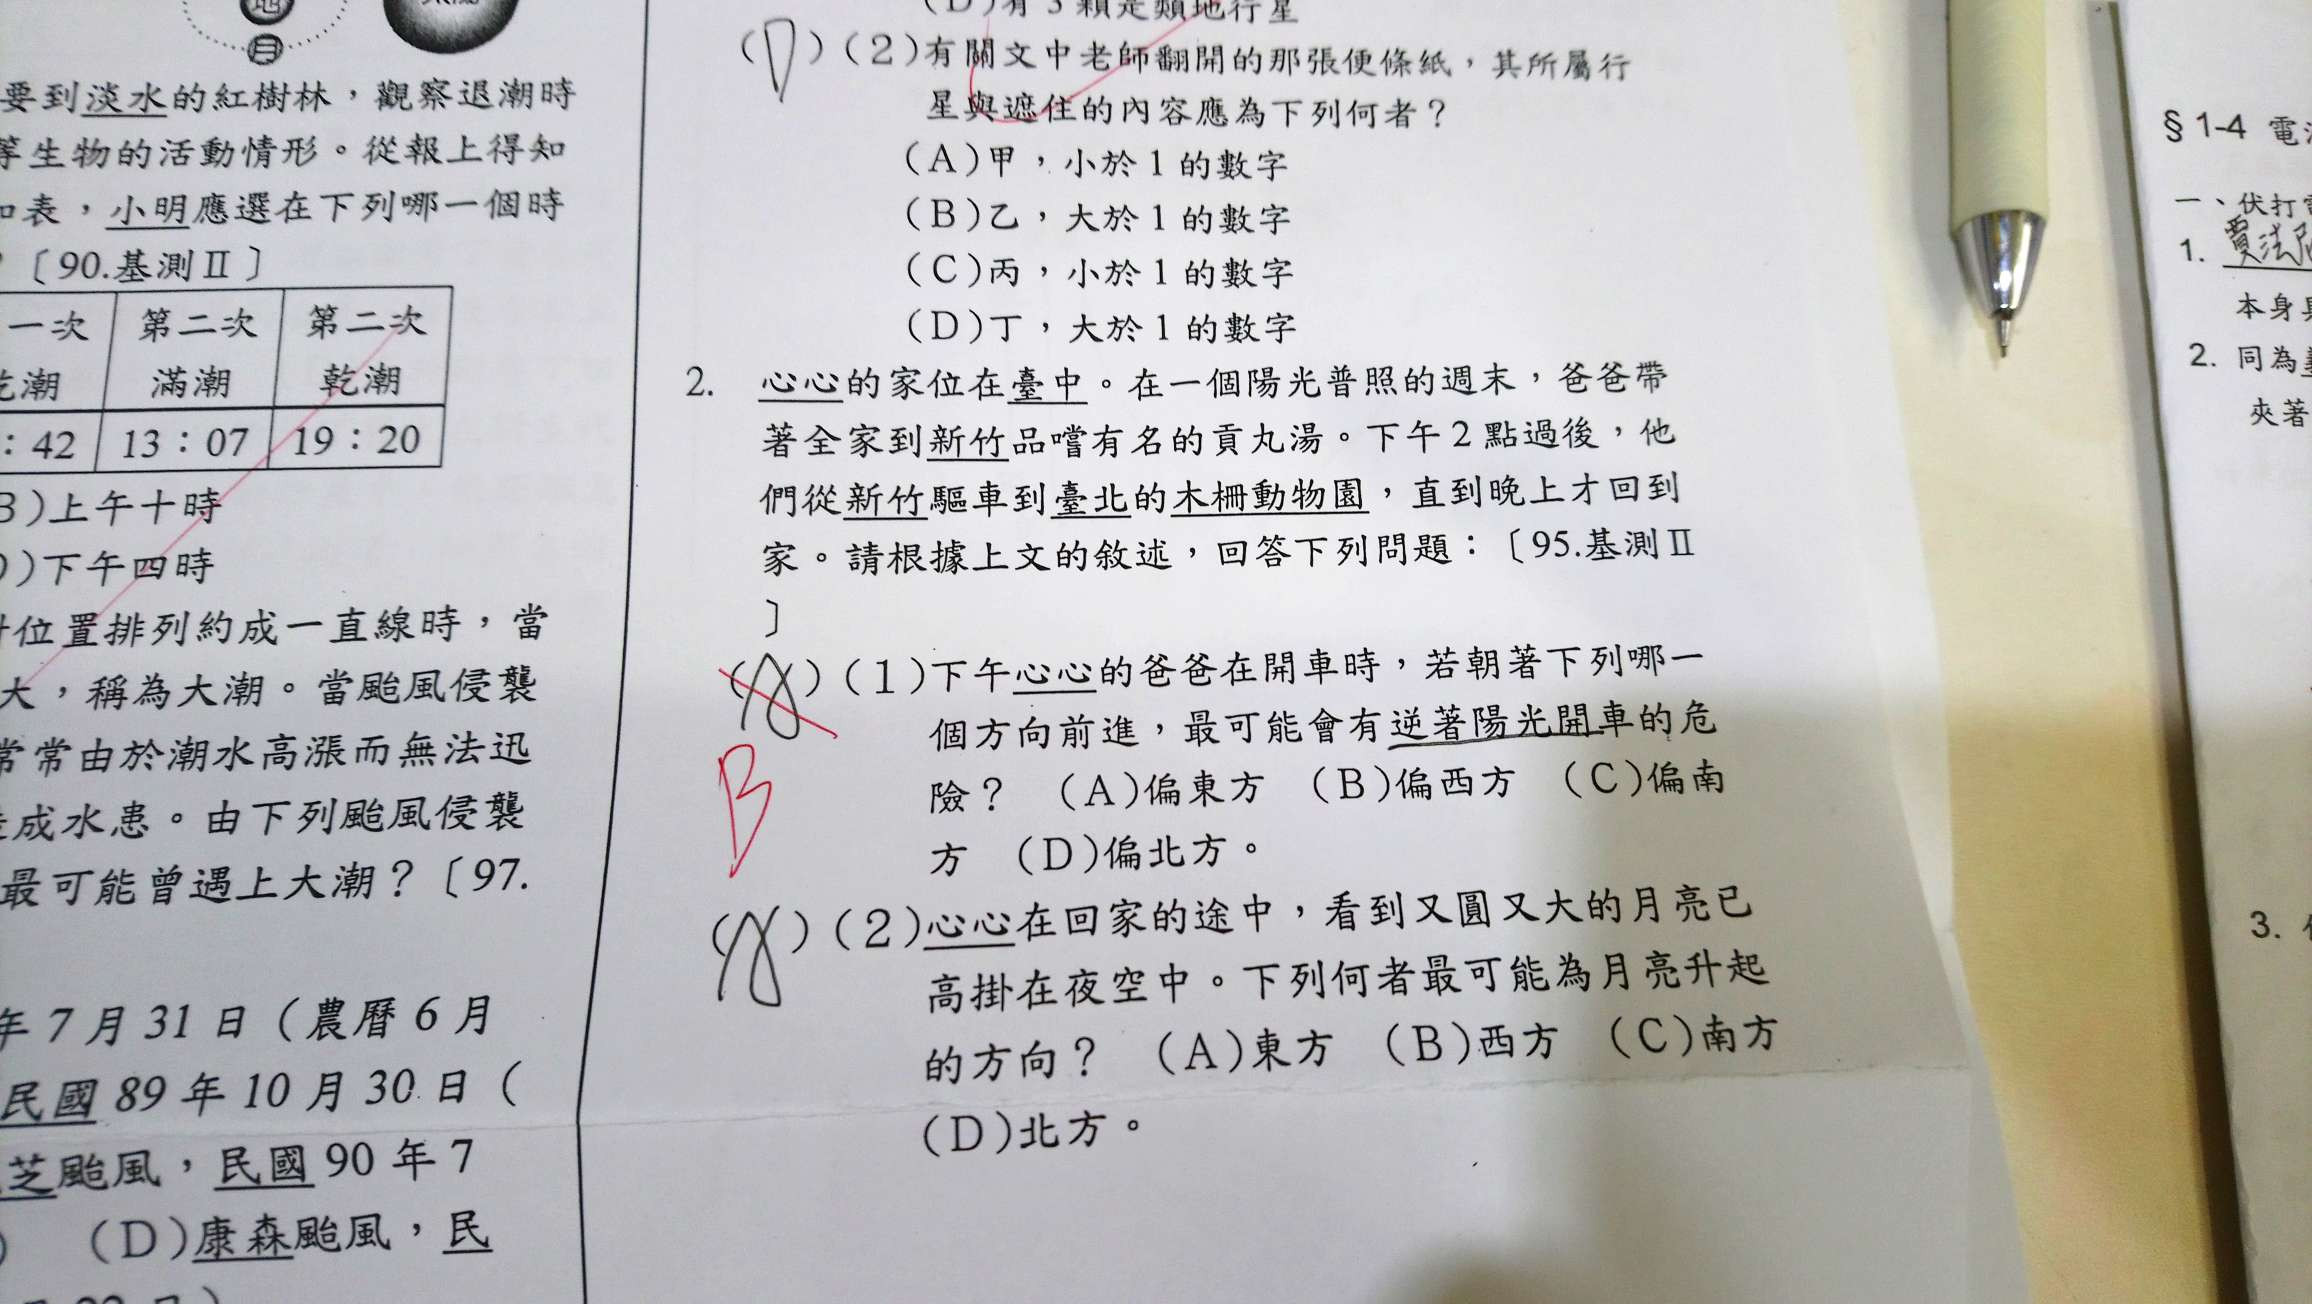 地
月
要到淡水的紅樹林，觀察退潮時
等生物的活動情形。從報上得知
表，小明應選在下列哪一個時
〔90.基測Ⅱ〕
一次 第二次 第二次
乾潮 滿潮 乾潮
：42 13：07 19：20
B)上午十時
)下午四時
位置排列約成一直線時，當
大，稱為大潮。當颱風侵襲
常常由於潮水高漲而無法迅
成水患。由下列颱風侵襲
最可能曾遇上大潮？〔97.
年7月31日（農曆6月
民國89年10月30日（
芝颱風，民國90年7
(D)康森颱風，民
(D)有3顆是類地行星
(D)(2)有關文中老師翻開的那張便條紙，其所屬行
星與遮住的內容應為下列何者？
(A)甲，小於1的數字
(B)乙，大於1的數字
(C)丙，小於1的數字
(D)丁，大於1的數字
2. 心心的家位在臺中。在一個陽光普照的週末，爸爸帶
著全家到新竹品嚐有名的貢丸湯。下午2點過後，他
們從新竹驅車到臺北的木柵動物園，直到晚上才回到
家。請根據上文的敘述，回答下列問題：〔95.基測Ⅱ
〕
(A)(1)下午心心的爸爸在開車時，若朝著下列哪一
個方向前進，最可能會有逆著陽光開車的危
B
險？ (A)偏東方 (B)偏西方 (C)偏南
方 (D)偏北方。
(A)(2)心心在回家的途中，看到又圓又大的月亮已
高掛在夜空中。下列何者最可能為月亮升起
的方向？ (A)東方 (B)西方 (C)南方
(D)北方。
§1-4 電
一、伏打
1. 賈法尼
本身
2. 同為
夾著
3.